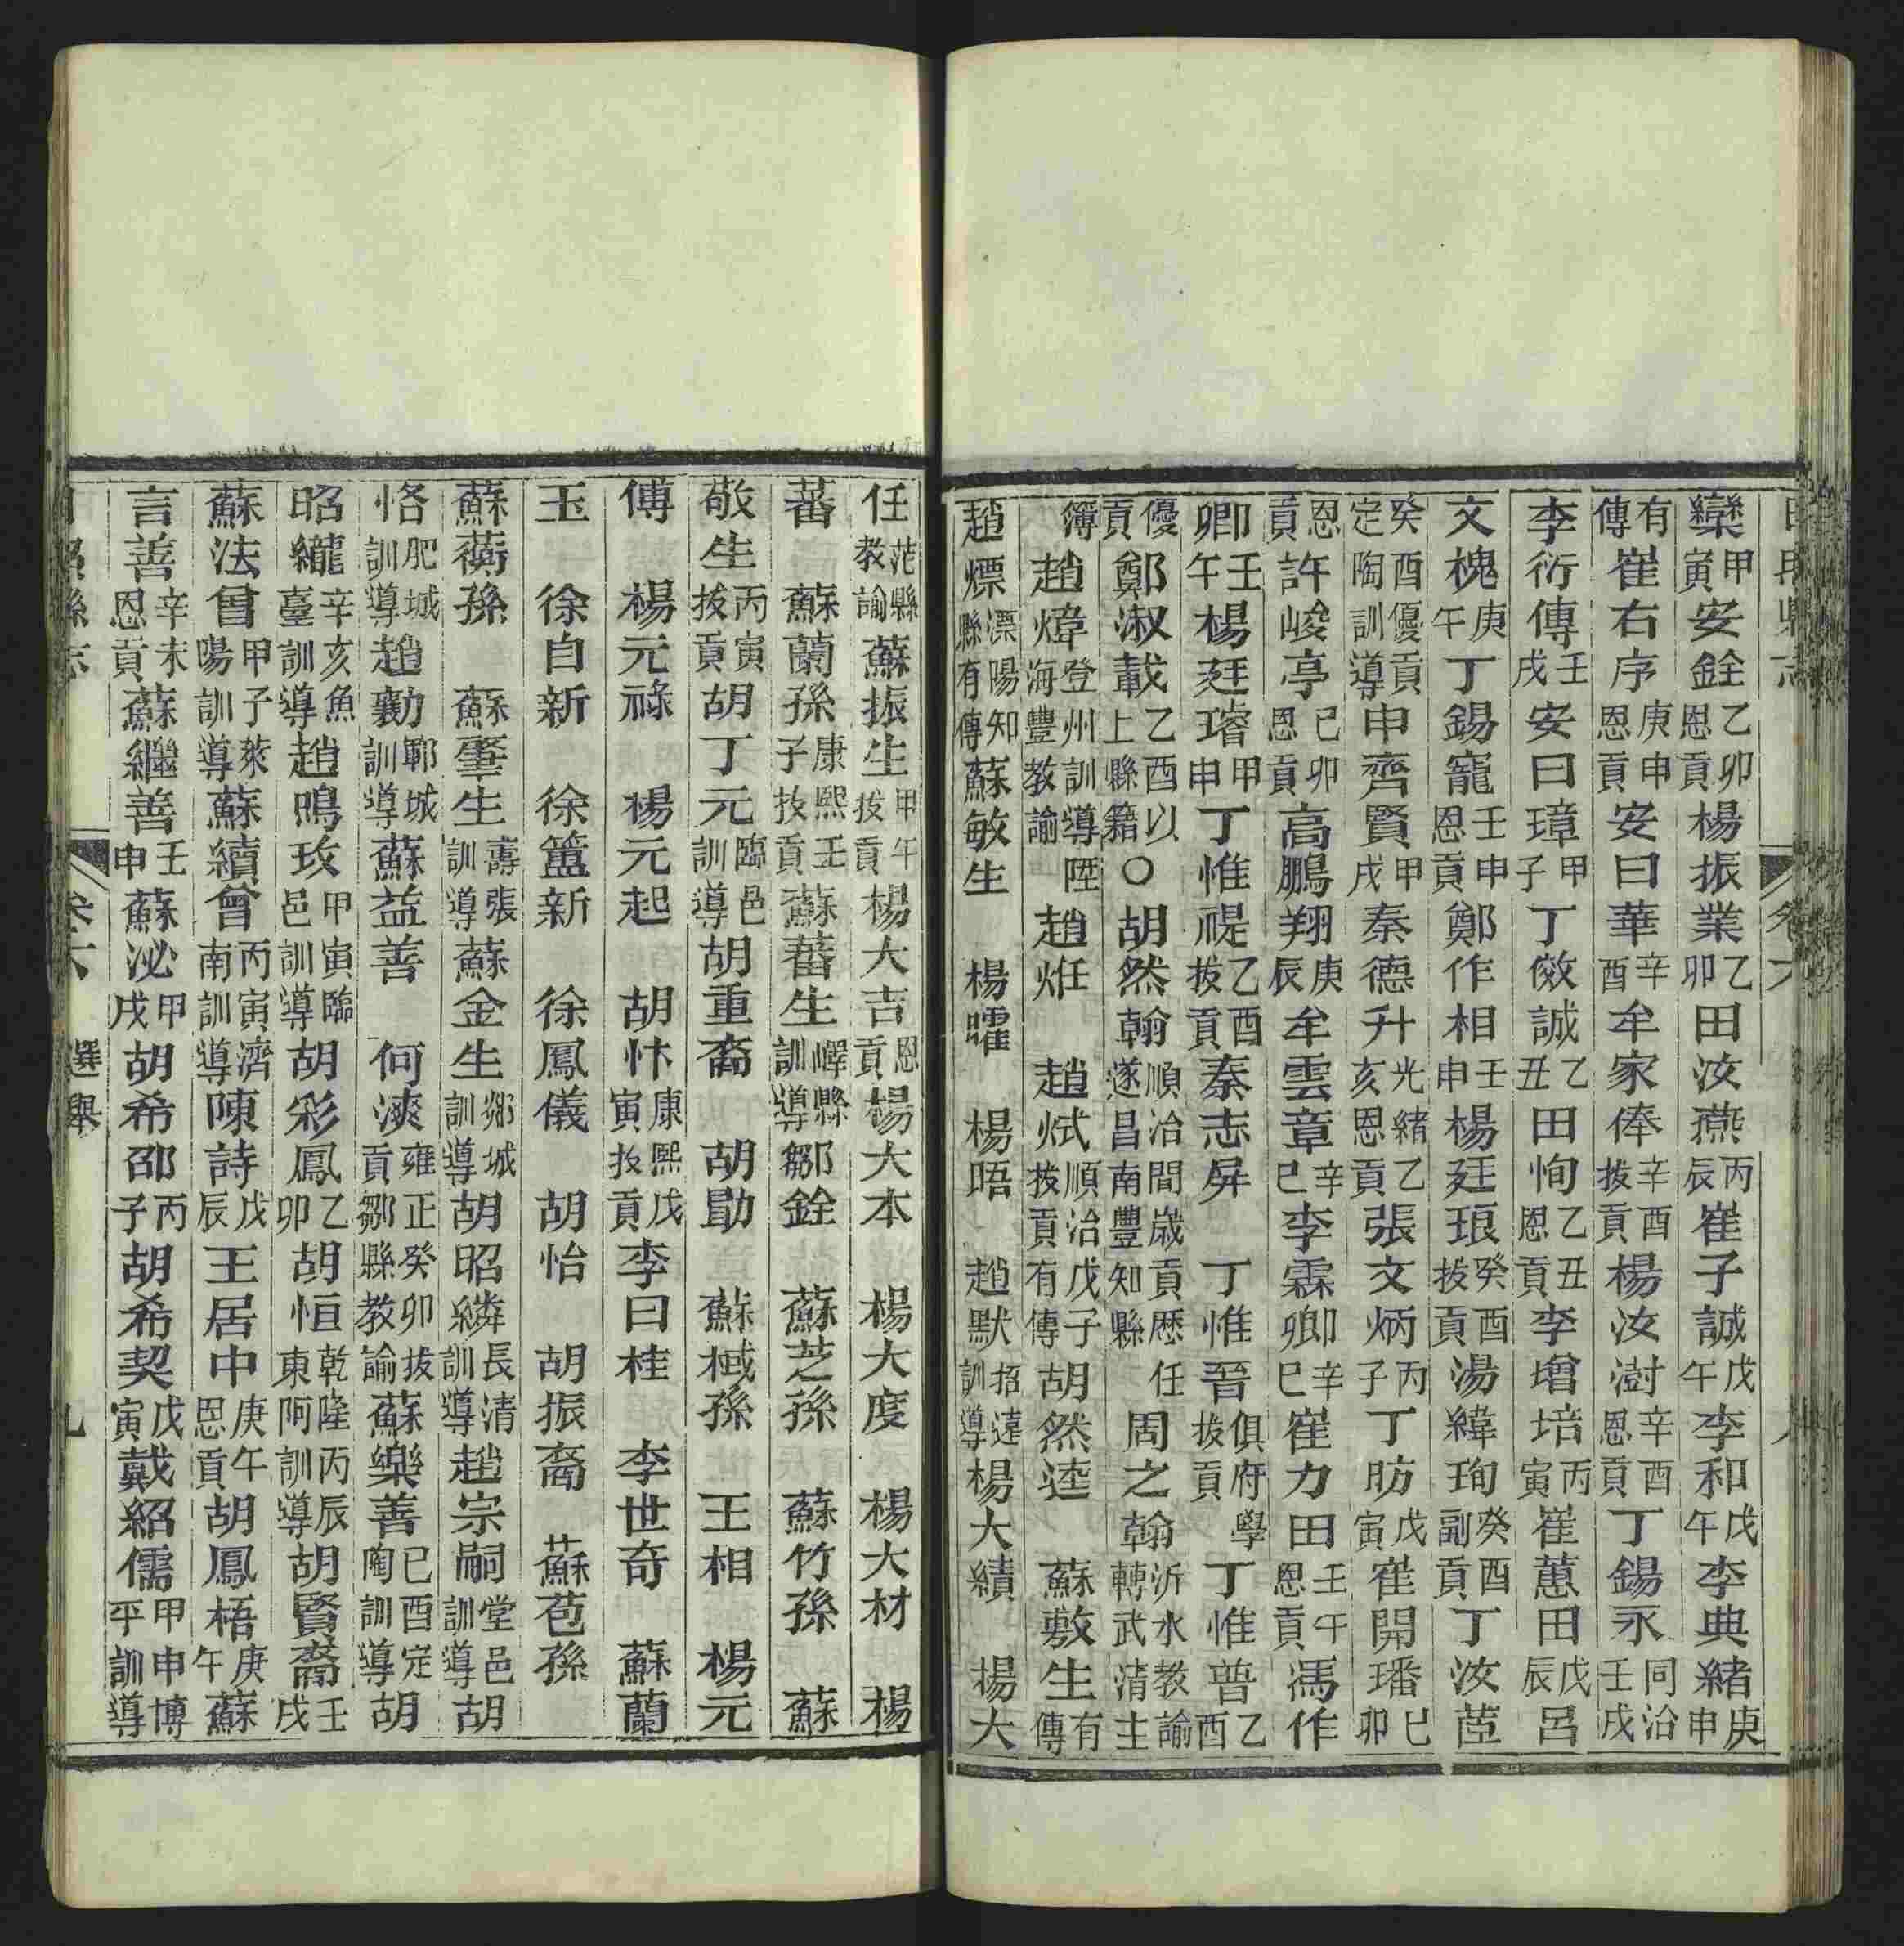 欒甲寅安銓乙卯恩貢楊振業乙卯田汝燕丙辰崔子誠戊午李和戊午李典緒庚申
有傳崔右序庚申恩貢安曰華辛酉牟家俸辛酉拔貢楊汝澍辛酉恩貢丁錫永同治壬戌
李衍傳壬戌安曰璋甲子丁儆誠乙丑田恂乙丑恩貢李增培丙寅崔蕙田戊辰呂
文槐庚午丁錫寵壬申恩貢鄭作相壬申楊廷琅癸酉拔貢湯緯珣癸酉副貢丁汝茝
癸酉優貢定陶訓導申齊賢甲戌秦德升光緒乙亥恩貢張文炳丙子丁昉戊寅崔開璠己卯
恩貢許峻亭己卯恩貢高鵬翔庚辰牟雲章辛巳李霖卿辛巳崔力田壬午恩貢馮作
卿壬午楊廷璿甲申丁惟禔乙酉拔貢秦志屏丁惟晉俱府學拔貢丁惟普乙酉
優貢鄭淑載乙酉以上縣籍○胡然翰順治間歲貢歷遂昌南豐知縣任周之翰沂水教諭轉武清主
簿趙煒登州訓導陞海豐教諭趙烓趙烒順治戊子拔貢有傳胡然逵蘇敷生有傳
趙熛溧陽知縣有傳蘇敏生楊曜楊晤趙默招遠訓導楊大績楊大
任茌縣教諭蘇振生甲午拔貢楊大吉恩貢楊大本楊大度楊大材楊
蕃蘇蘭孫康熙壬子拔貢蘇蕃生嶧縣訓導鄒銓蘇芝孫蘇竹孫蘇
敬生丙寅拔貢胡丁元臨邑訓導胡重裔胡勛蘇棫孫王相楊元
傅楊元祿楊元起胡忭康熙戊寅拔貢李曰桂李世奇蘇蘭
玉徐自新徐簠新徐鳳儀胡怡胡振裔蘇苞孫
蘇蘅孫蘇肇生壽張訓導蘇金生郯城訓導胡昭繗長清訓導趙宗嗣堂邑訓導胡
恪肥城訓導趙勷鄆城訓導蘇益善何漺雍正癸卯拔貢鄒縣教諭蘇樂善己酉定陶訓導胡
昭䌫辛亥魚臺訓導趙鳴玫甲寅臨邑訓導胡彩鳳乙卯胡恒乾隆丙辰東阿訓導胡賢裔壬戌
蘇法曾甲子萊陽訓導蘇續曾丙寅濟南訓導陳詩戊辰王居中庚午恩貢胡鳳梧庚午蘇
言善辛未恩貢蘇繼善壬申蘇泌甲戌胡希邵丙子胡希契戊寅戴紹儒甲申博平訓導
卷六 選舉 九